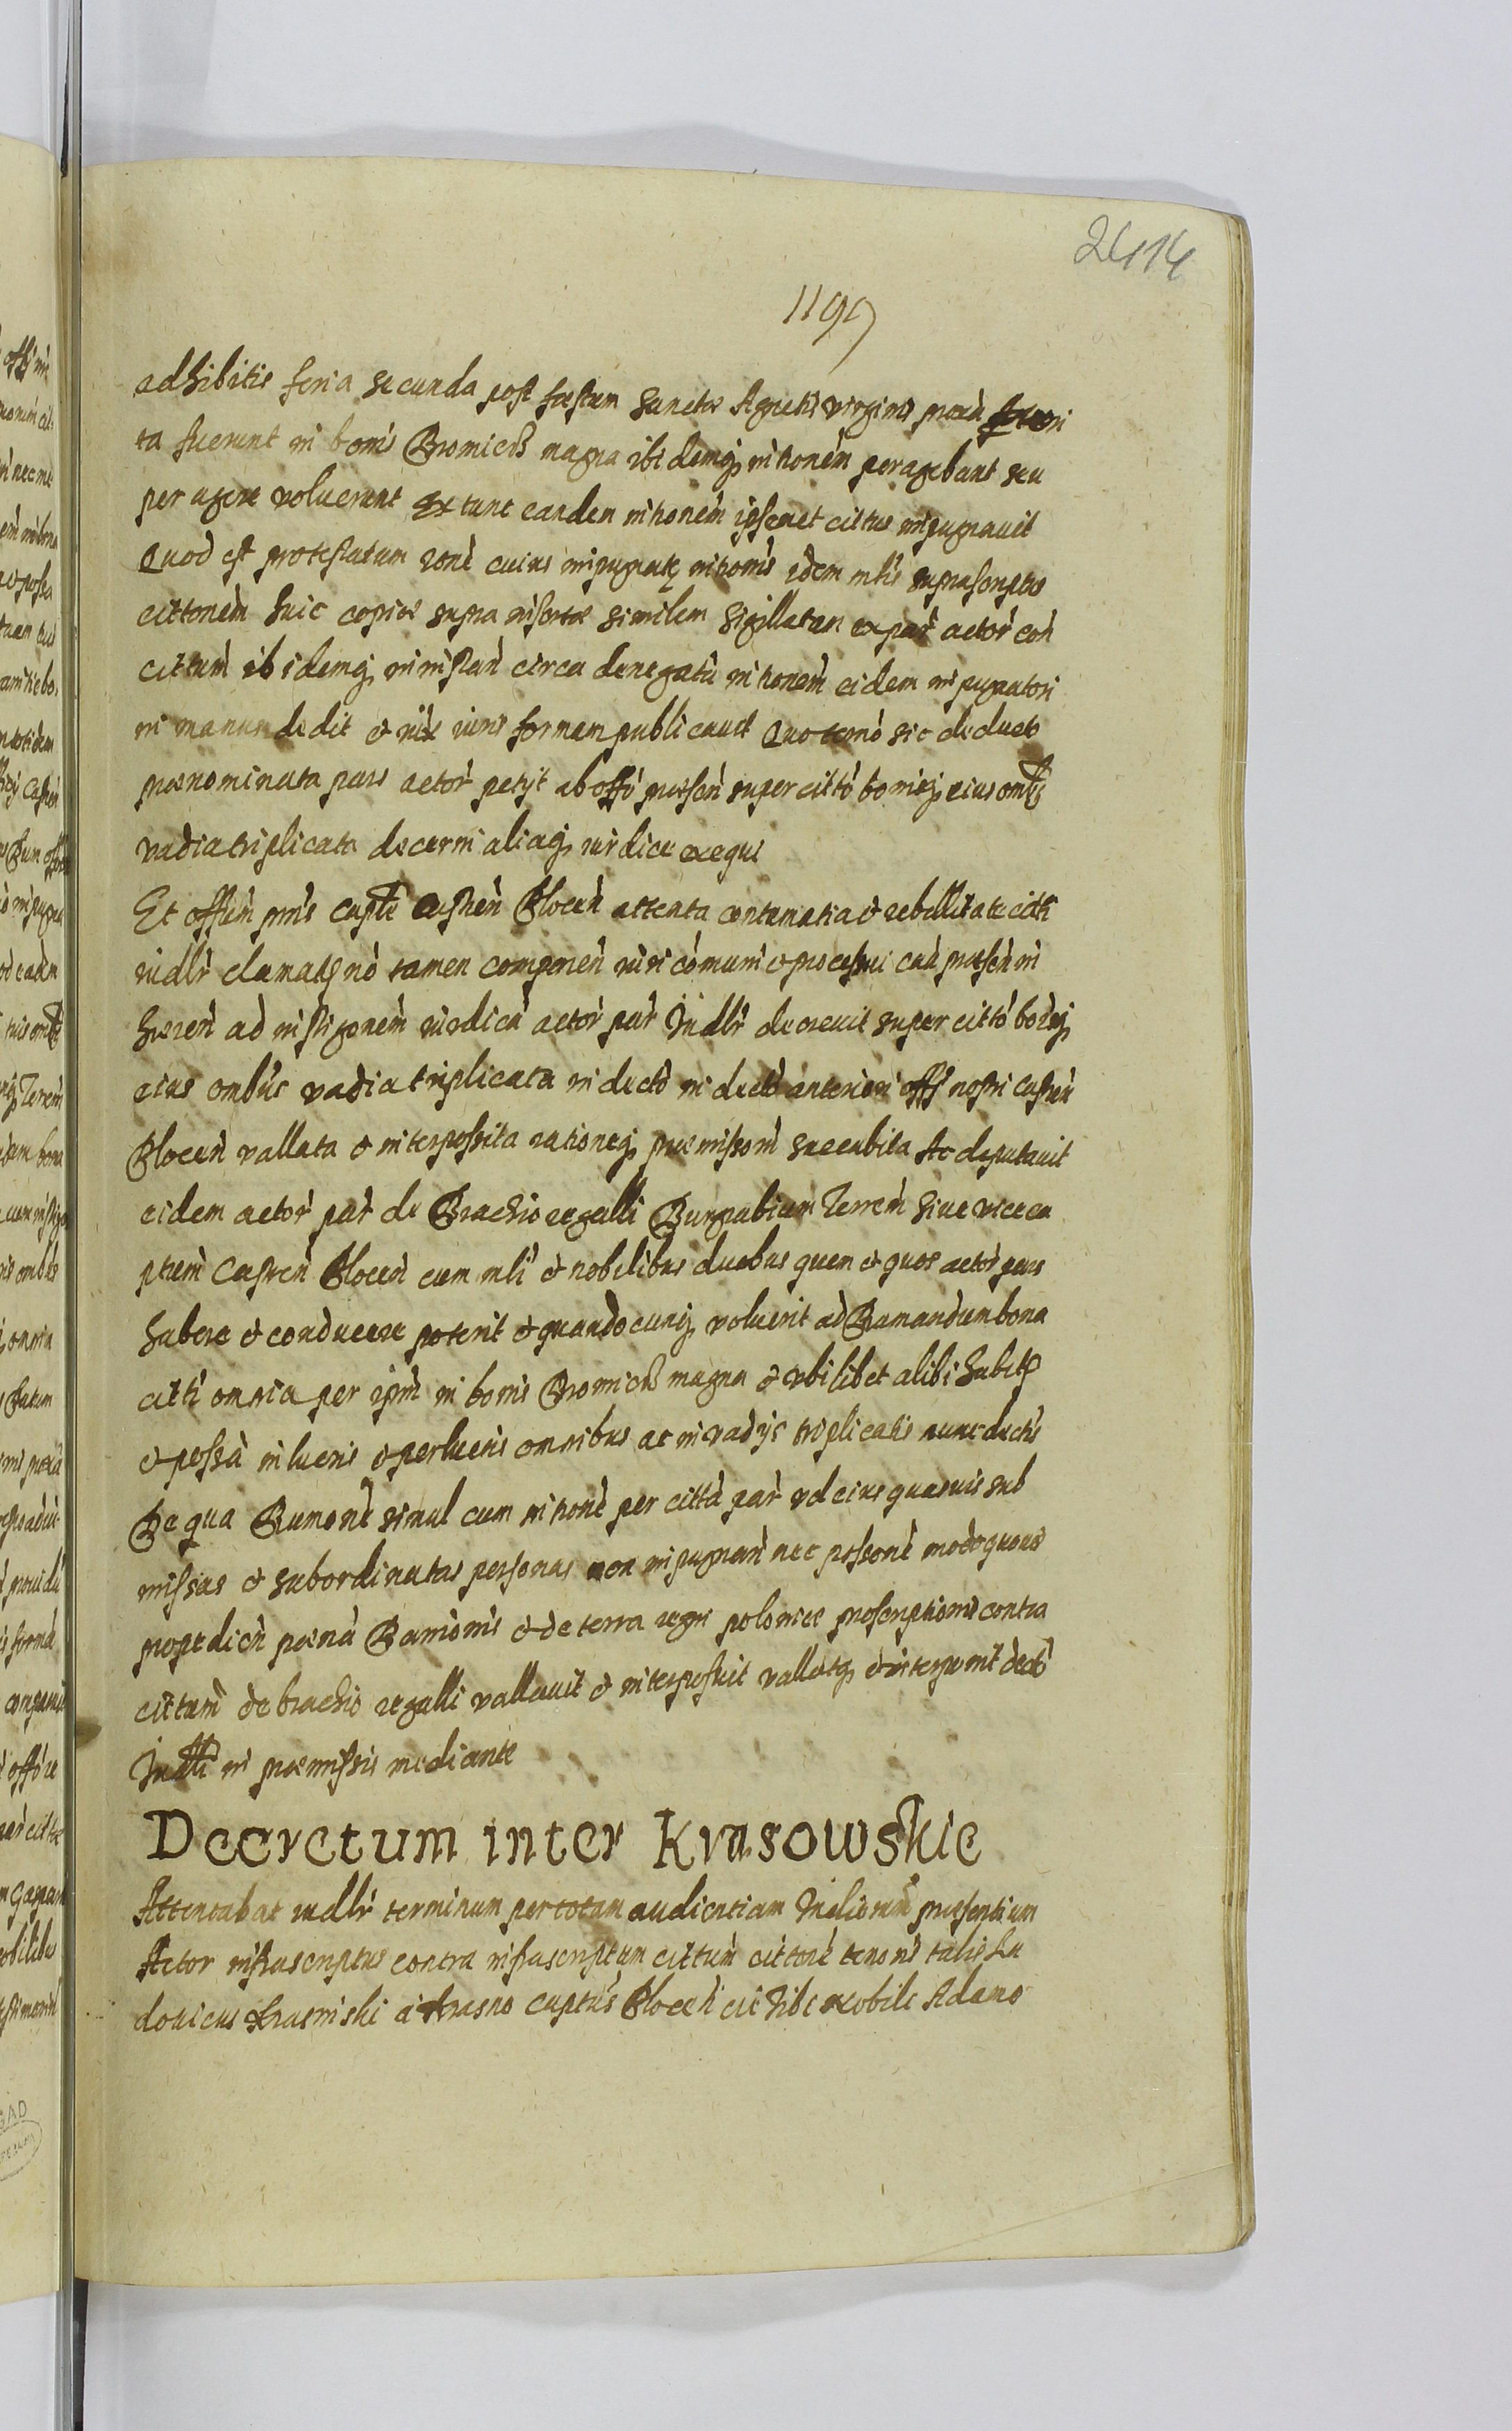 2414
1199
adhibitis feria secunda post fæstum Sanctæ Agnetis virginis præn
ta fuerunt in bonis Bromierz magna ibidemq intronem peragebant seu
per agere voluerunt Extunc eandem intronem ipsemet cittus impugnavit
Quod est protestatum rone cuius impugnatę intronis idem mlis suprascriptus
cittonem huic copiæ supra insertæ similem sigillatam ex par actor con
cittum ibidemq in instan circa denegatu intronem eidem impugnatori
in manum dedit et iux iuris formam publicauit Quo termo sic deducto
prænominata pars actor petyt ab offo præsen super citto bonisq eius omb
vadia triplicata decerni aliaq iurdice exequi
Et offium pnns caple Castren Plocen attenta contumatia et rebellitate citti
iudlr clamatę no tamen comparen iuri comuni et processui cau præsen in
hæren ad instigonem iurdica actor par Indlr decreuit super citto bonisq
eius ombus vadia triplicata in decto in decto anteriori offi nostri Castren
Plocen vallata et interpossita rationeq præmissorū succubita Ac deputauit
eidem actor par de Brachio regalli Burgrabium Terren siue viceca
ptum Castren Plocen cum mli et nobilibus duobus quem et quos actor pars
habere et conducere poterit et quandocunq voluerit ad Rumandum bona
citti omnia per ipm in bonis Bromierz magna et vbilibet alibi habita
et possa in lucris et perlucris omnibus ac in vadys triplicatis nunc dectis
De qua Rumone simul cum introne per citta par vel eius quasuis sub
missas et subordinatas personas non impugnan nec possone modo quouis
propedien pœna Bannionis et de terra regni poloniæ proscriptionis contra
cittum de brachio regalli vallauit et interposuit vallatq et interponit decto
Indli in præmissis mediante
Decretum inter Krasowskie
Attentabat iudlr terminum per totam audientiam Indiciorum præsentium
Actor infrascriptus contra infrascriptum cittum cittore tenoris talis Lu
douicus Krasinski a Krasno captus Plocen citt tibi nobile Adamo